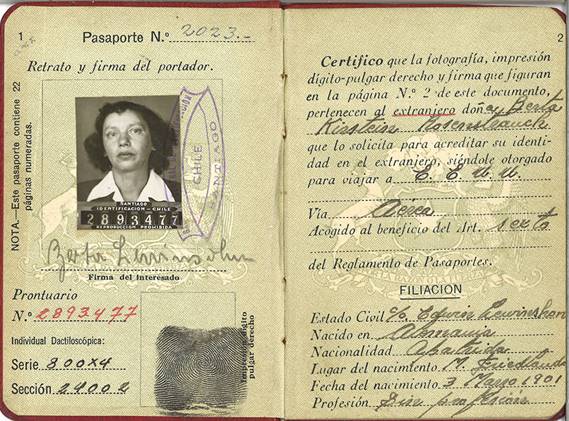 1
Pasaporte N.º 2023.-
Retrato y firma del portador.
NOTA.—Este pasaporte contiene 22
páginas numeradas.
SANTIAGO
IDENTIFICACION - CHILE
2893477
REPRODUCCION PROHIBIDA
CHILE
SANTIAGO
Berta Levinsohn
Firma del interesado
Prontuario
N.º 2893477
Individual Dactiloscópica:
Serie 300x4
Sección 24002
Impresión dígito
pulgar derecho
2
Certifico que la fotografía, impresión
dígito-pulgar derecho y firma que figuran
en la página N.º 2 de este documento,
pertenecen al extranjero doña Berta
Kirstein
que lo solicita para acreditar su identi-
dad en el extranjero, siéndole otorgado
para viajar a E.E. U.U.
Vía Aérea
Acogido al beneficio del Art. sexto
del Reglamento de Pasaportes.
FILIACION
Estado Civil c/c Edwin Lewinshon
Nacido en Alemania
Nacionalidad Apatrida
Lugar del nacimiento M. Friedland
Fecha del nacimiento 3 Marzo 1901
Profesión Sin profesion